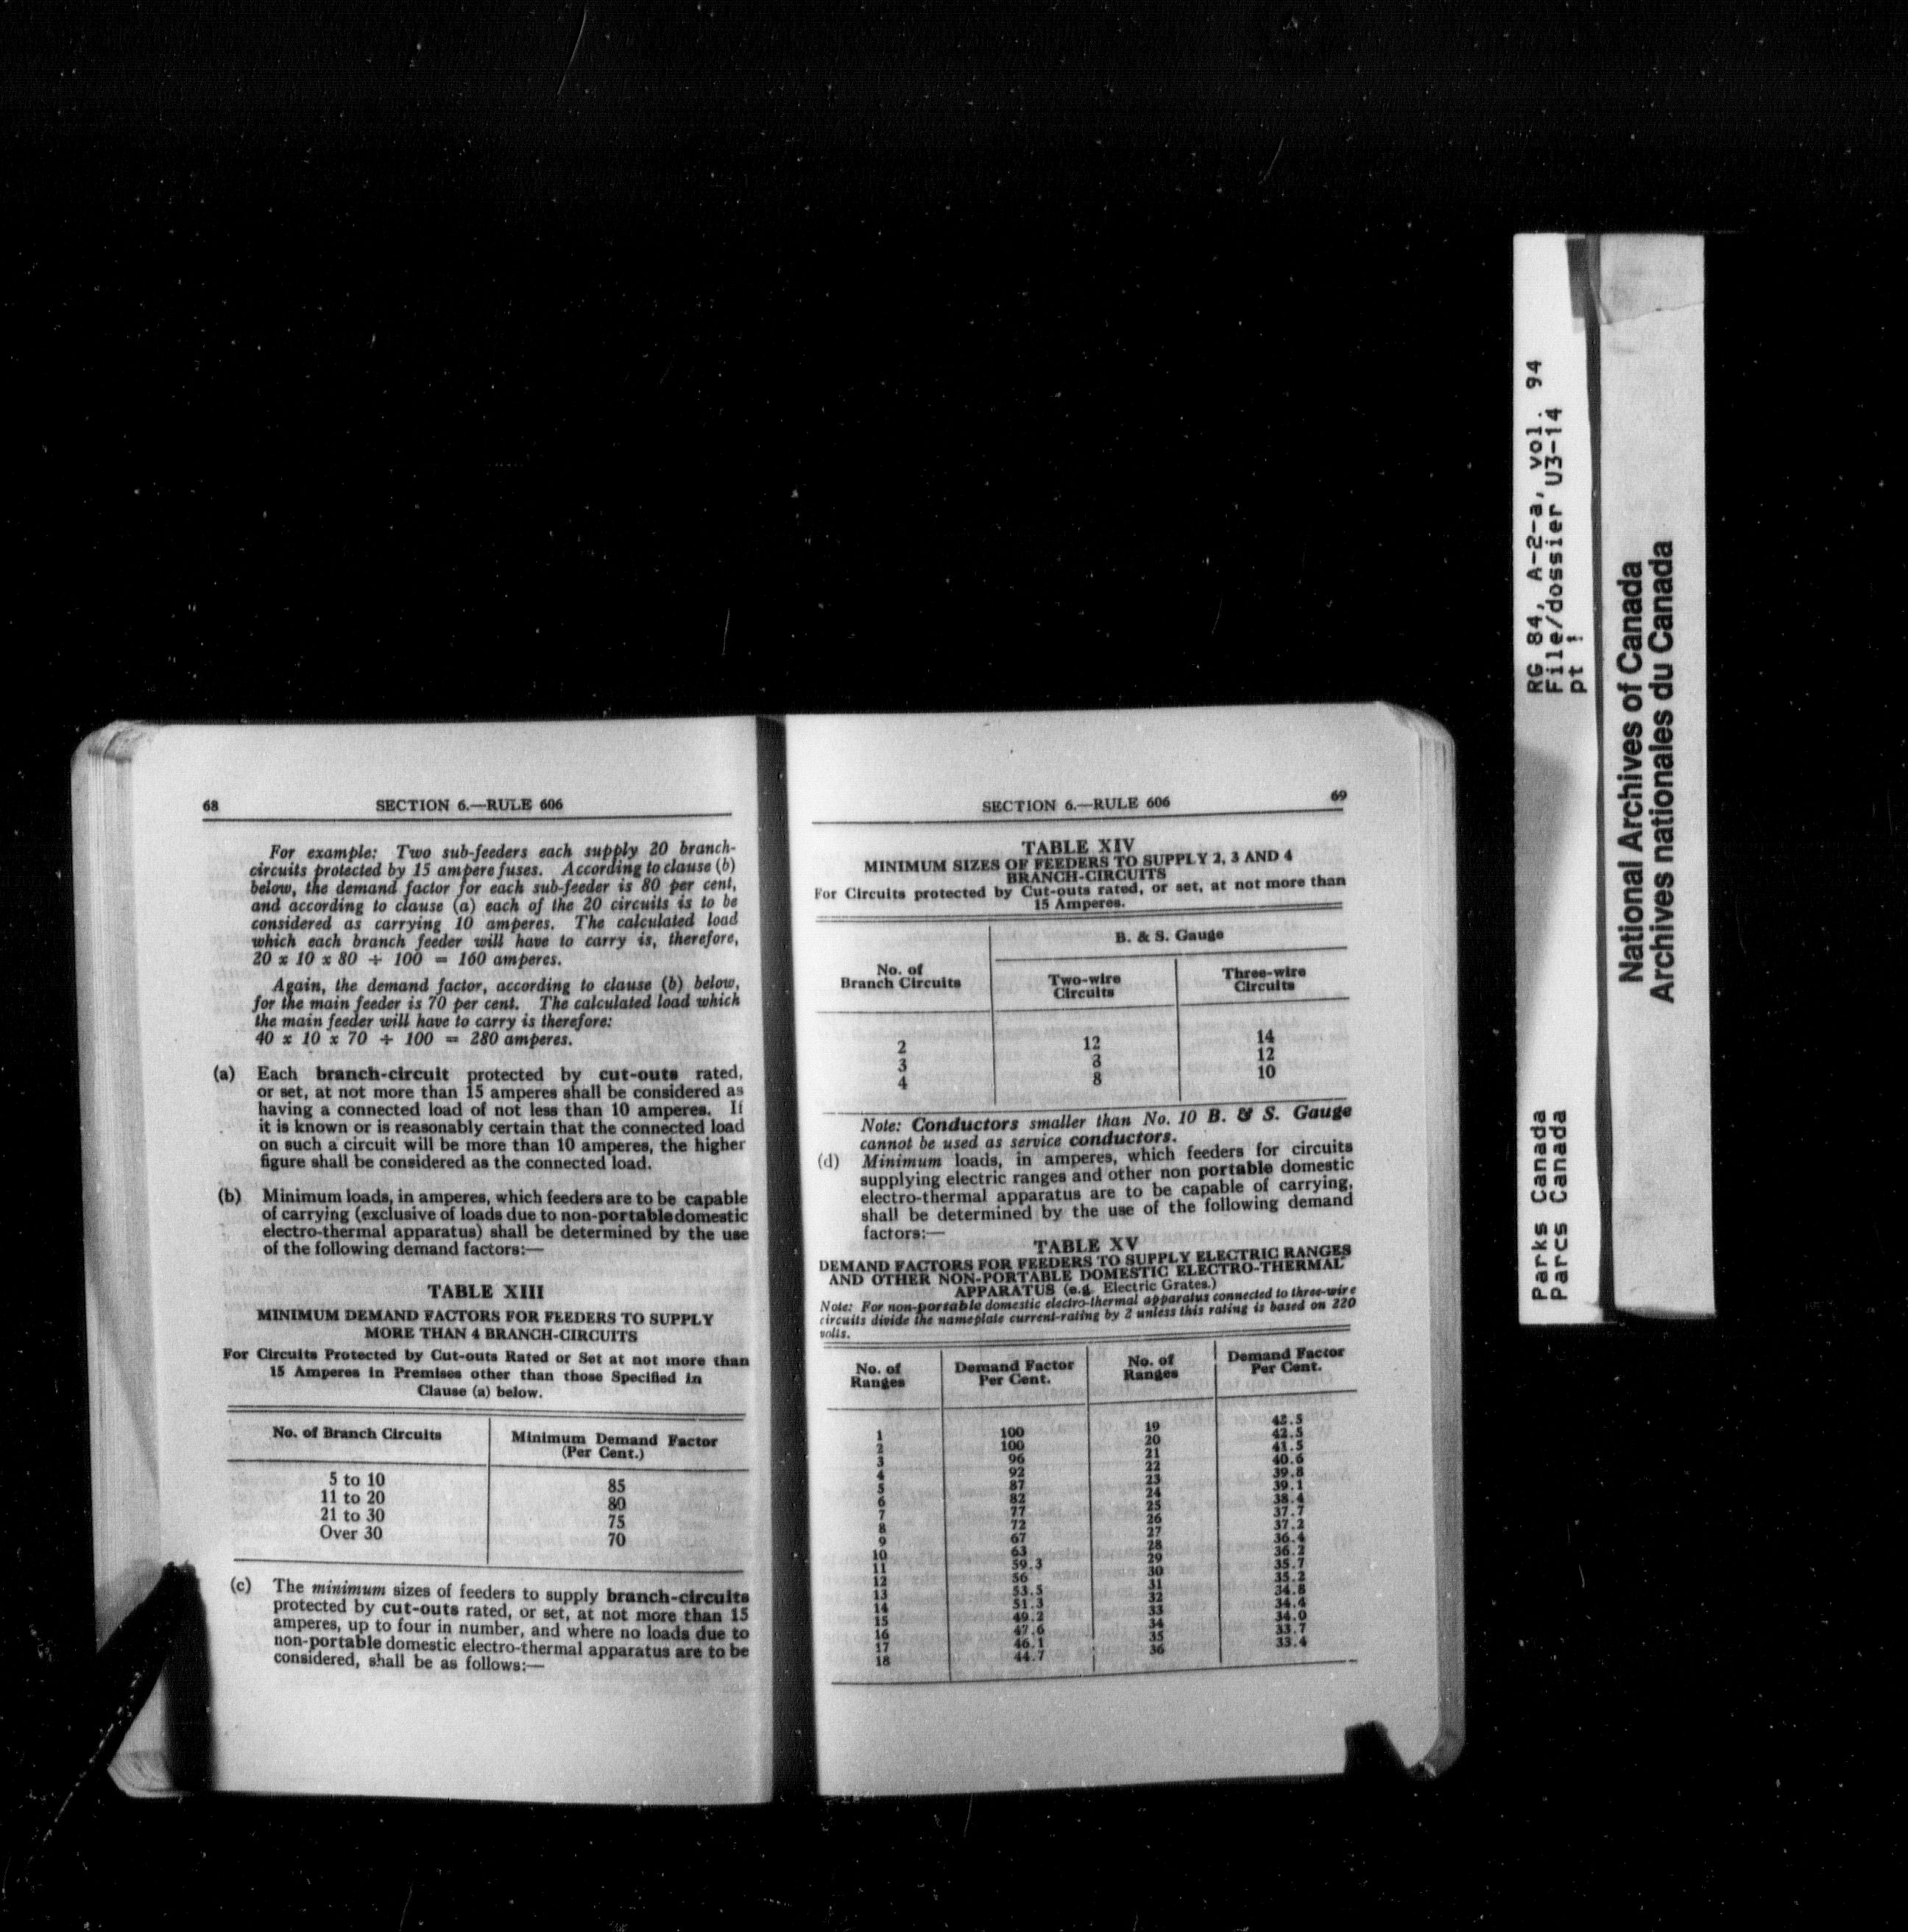 68
SECTION 6.—RULE 606
For example: Two sub-feeders each supply 20 branch-
circuits protected by 15 ampere fuses. According to clause (b)
below, the demand factor for each sub-feeder is 80 per cent,
and according to clause (a) each of the 20 circuits is to be
considered as carrying 10 amperes. The calculated load
which each branch feeder will have to carry is, therefore,
20 x 10 x 80 ÷ 100 = 160 amperes.
Again, the demand factor, according to clause (b) below,
for the main feeder is 70 per cent. The calculated load which
the main feeder will have to carry is therefore:
40 x 10 x 70 ÷ 100 = 280 amperes.
(a) Each branch-circuit protected by cut-outs rated,
or set, at not more than 15 amperes shall be considered as
having a connected load of not less than 10 amperes. If
it is known or is reasonably certain that the connected load
on such a circuit will be more than 10 amperes, the higher
figure shall be considered as the connected load.
(b) Minimum loads, in amperes, which feeders are to be capable
of carrying (exclusive of loads due to non-portable domestic
electro-thermal apparatus) shall be determined by the use
of the following demand factors:—
TABLE XIII
MINIMUM DEMAND FACTORS FOR FEEDERS TO SUPPLY
MORE THAN 4 BRANCH-CIRCUITS
For Circuits Protected by Cut-outs Rated or Set at not more than
15 Amperes in Premises other than those Specified in
Clause (a) below.
No. of Branch Circuits Minimum Demand Factor
(Per Cent.)
5 to 10 85
11 to 20 80
21 to 30 75
Over 30 70
(c) The minimum sizes of feeders to supply branch-circuits
protected by cut-outs rated, or set, at not more than 15
amperes, up to four in number, and where no loads due to
non-portable domestic electro-thermal apparatus are to be
considered, shall be as follows:—
SECTION 6.—RULE 606
69
TABLE XIV
MINIMUM SIZES OF FEEDERS TO SUPPLY 2, 3 AND 4
BRANCH-CIRCUITS
For Circuits protected by Cut-outs rated, or set, at not more than
15 Amperes.
B. & S. Gauge
No. of
Branch Circuits
Two-wire
Circuits
Three-wire
Circuits
2 12 14
3 8 12
4 8 10
Note: Conductors smaller than No. 10 B. & S. Gauge
cannot be used as service conductors.
(d) Minimum loads, in amperes, which feeders for circuits
supplying electric ranges and other non portable domestic
electro-thermal apparatus are to be capable of carrying,
shall be determined by the use of the following demand
factors:—
TABLE XV
DEMAND FACTORS FOR FEEDERS TO SUPPLY ELECTRIC RANGES
AND OTHER NON-PORTABLE DOMESTIC ELECTRO-THERMAL
APPARATUS (e.g. Electric Grates.)
Note: For non-portable domestic electro-thermal apparatus connected to three-wire
circuits divide the nameplate current-rating by 2 unless this rating is based on 220
volts.
No. of
Ranges
Demand Factor
Per Cent.
No. of
Ranges
Demand Factor
Per Cent.
1 100 19 43.5
2 100 20 42.5
3 96 21 41.5
4 92 22 40.6
5 87 23 39.8
6 82 24 39.1
7 77 25 38.4
8 72 26 37.7
9 67 27 37.2
10 63 28 36.4
11 59.3 29 36.2
12 56 30 35.7
13 53.5 31 35.2
14 51.3 32 34.8
15 49.2 33 34.4
16 47.6 34 34.0
17 46.1 35 33.7
18 44.7 36 33.4
RG 84, A-2-a, vol. 94
File/dossier U3-14
pt 1
Parks Canada
Parcs Canada
National Archives of Canada
Archives nationales du Canada